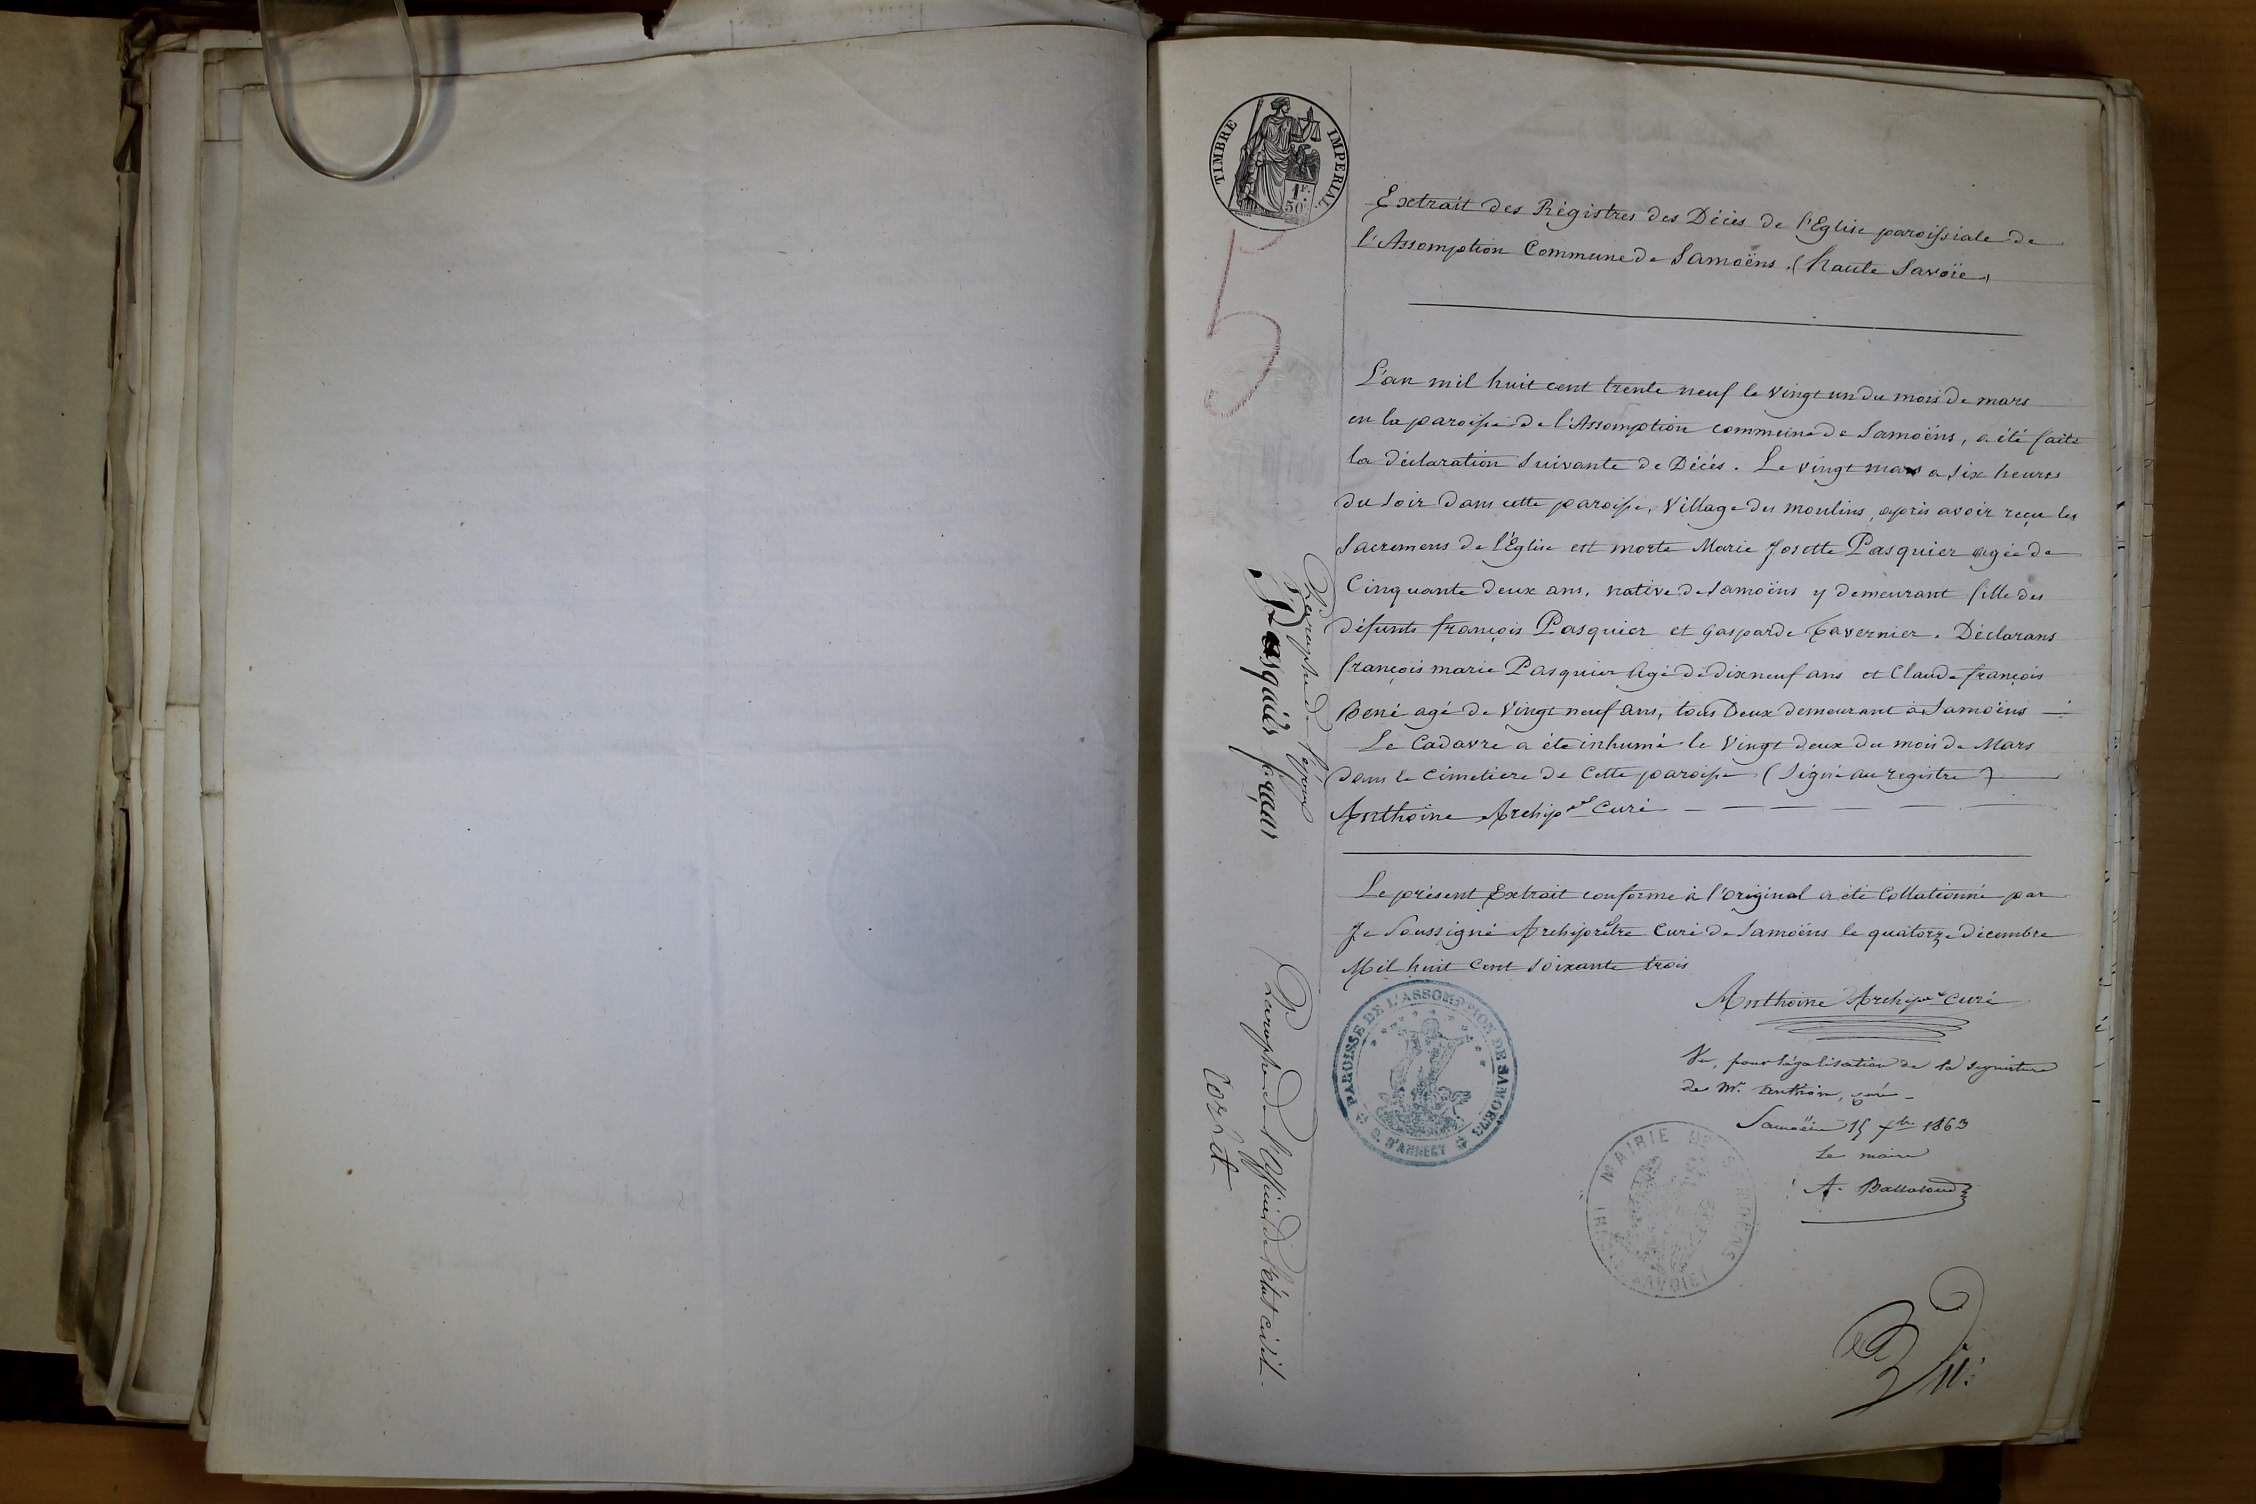 TIMBRE IMPERIAL
1F. 50c
5
Extrait des Régistres des Décès de l'Eglise paroissiale de
l'Assomption Commune de Samoëns. (haute Savoïe)
L'an mil huit cent trente neuf le vingt un du mois de mars
en la paroisse de l'Assomption commune de Samoëns, a été faite
la déclaration Suivante de Décès. Le vingt mars a six heures
du Soir dans cette paroisse, Village des moulins, après avoir reçu les
Sacremens de l'Eglise est morte Marie Josette Pasquier agée de
Cinquante deux ans, native de Samoëns y demeurant fille des
défunts françois Pasquier et gasparde Tavernier. Déclarans
françois marie Pasquier Agé de dixneuf ans et Claude françois
René agé de Vingt neuf ans, tous Deux demeurant à Samoëns
Le Cadavre a été inhumé le Vingt deux du mois de Mars
dans le cimetiere de Cette paroisse (Signé au registre)
Anthoine Archip. Curé
Paraphe de l'époux
Pasquier françois
Le présent Extrait conforme à l'original a été Collationné par
Je Soussigné Archiprêtre Curé de Samoëns le quatorze décembre
Mil huit Cent Soixante trois
Anthoine Archip. Curé
PAROISSE DE L'ASSOMPTION DE SAMOENS
D. D'ANNECY
Vu, pour légalisation de la signature
de Mr. Anthoine, curé
Samoëns 15 xbre 1863
Le maire
MAIRIE DE SAMOËNS
Paraphe de l'officier de l'état civil.